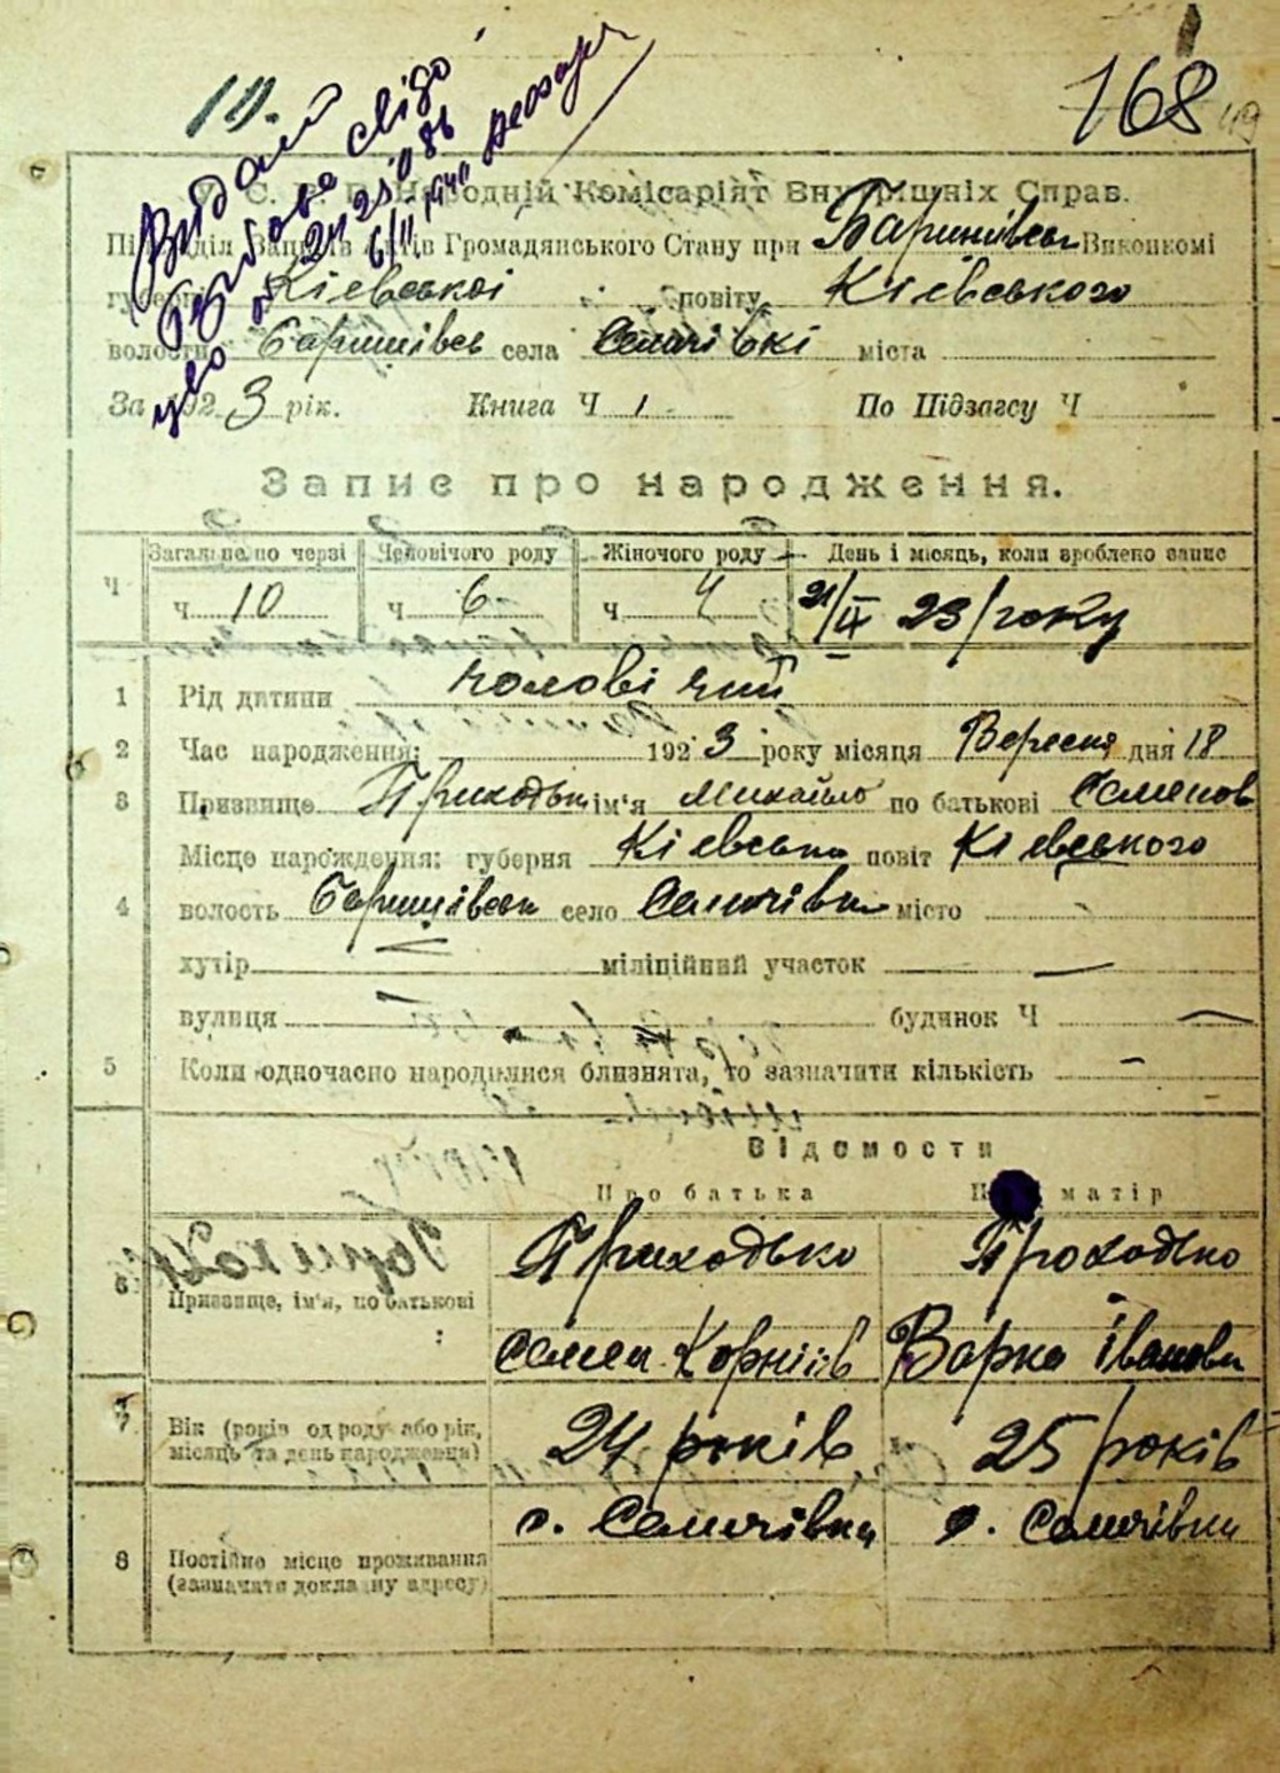 10.
168
Видані
свідо
6/II 1940
У. С. Р. Р. Народній Комісаріят Внутрішніх Справ.
Підвідділ Записів Актів Громадянського Стану при Баришівськ Виконкомі
губерні Кієвськоі повіту Кієвського
волости Баришівсь села Селичівкі міста
За 1923 рік. Книга Ч 1. По Підзагсу Ч
Запис про народження.
Загальне по черзі Чоловічого роду Жіночого роду День і місяць, коли зроблено запис
Ч ч. 10 ч. 6 ч. 4 21/IX 23 року
1 Рід дитини чоловічий
2 Час народження: 1923 року місяця Вересня дня 18
3 Призвище Приходько ім'я Михайло по батькові Семенов
Місце народження: губерня Кієвська повіт Кієвського
4 волость Баришівськ село Селичівка місто
хутір міліційний участок —
вулиця — будинок Ч —
5 Коли одночасно народилися близнята, то зазначити кількість —
Відомости
Про батька Про матір
Приходько Проходько
6 Призвище, ім'я, по батькові
Семен Корніів Варка Іванови
7 Вік (років од роду або рік, 24 років 25 років
місяць та день народження)
с. Селичівка с. Селичівка
8 Постійне місце проживання
(зазначити докладну адресу)